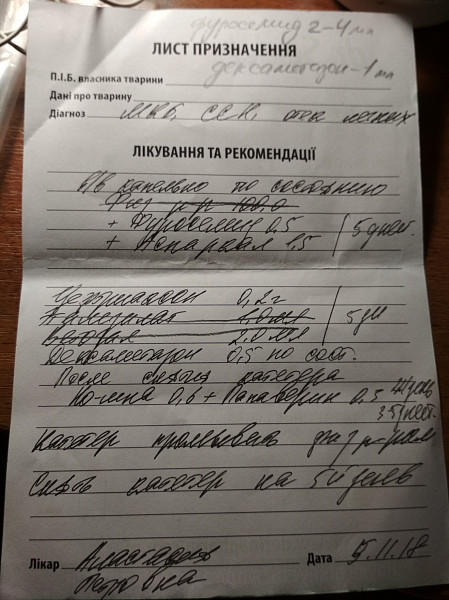 фуросемид 2-4 мл
ЛИСТ ПРИЗНАЧЕННЯ
дексаметазон - 1 мл
П.І.Б. власника тварини
Дані про тварину
Діагноз МКБ, ССН, отек легких
ЛІКУВАННЯ ТА РЕКОМЕНДАЦІЇ
в/в капельно по состоянию
Физ р-р 100,0
+ Фуросемид 0,5
+ Аспаркам 1,5 5 дней.
Цефтриаксон 0,2 г
1,0 мл 5 дн
2,0 мл
Дексаметазон 0,5 по сост.
После снятия катетера
Но-шпа 0,6 + Папаверин 0,5
Катетер промывать физ р-ром
Снять катетер на 5й день
Лікар Анастасия Дата 5.11.18
Петровна